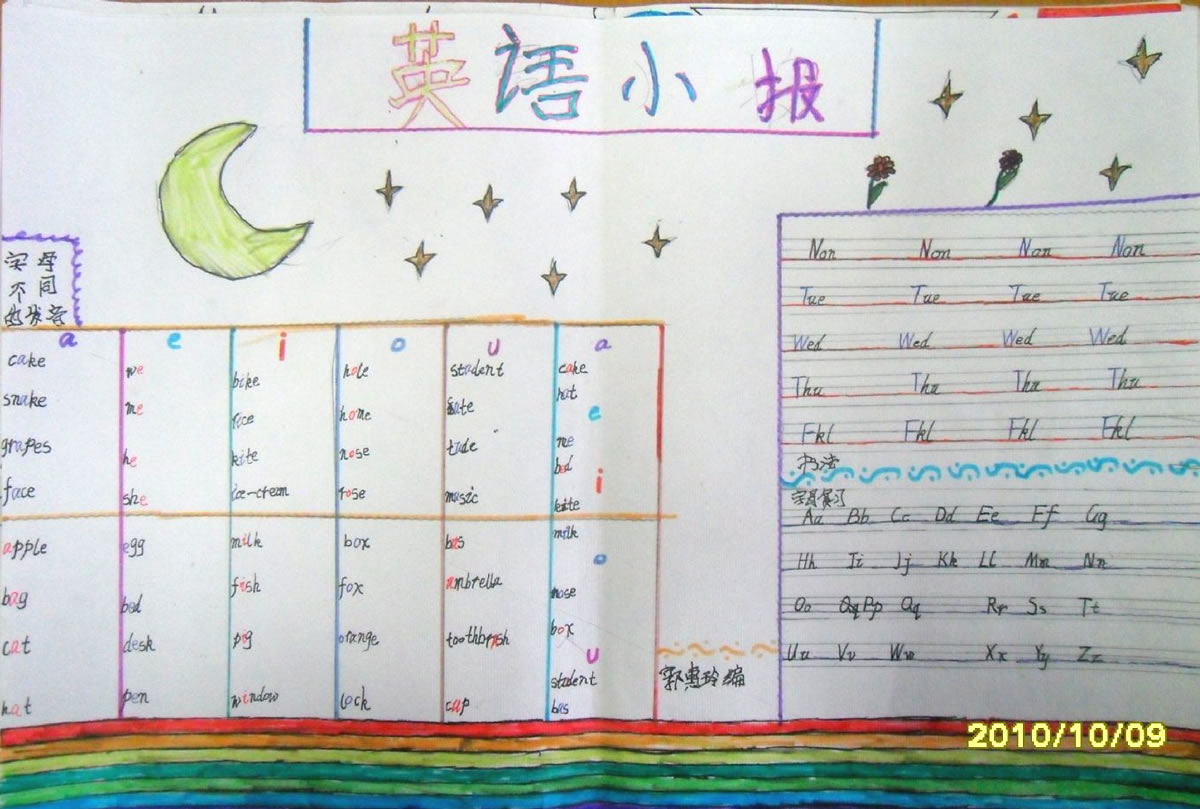 英语小报
字母
不同
的发音
a e i o u a
cake we bike hole student cake
hat
snake me face home tute e
grapes he kite nose tude me
bed
face she ice-cream rose music i
kite
apple egg milk box bas milk
o
bag bed fish fox umbrella nose
cat desk pig orange toothbrush box
u
student
hat pen window lock cap bas
郭惠玲编
Non Non Non Non
Tue Tue Tue Tue
Wed Wed Wed Wed
Thu Thu Thu Thu
Fkl Fkl Fkl Fkl
书法
字母复习
Aa Bb Cc Dd Ee Ff Gg
Hh Ii Jj Kk Ll Mm Nn
Oo Pp Qq Rr Ss Tt
Uu Vv Ww Xx Yy Zz
2010/10/09